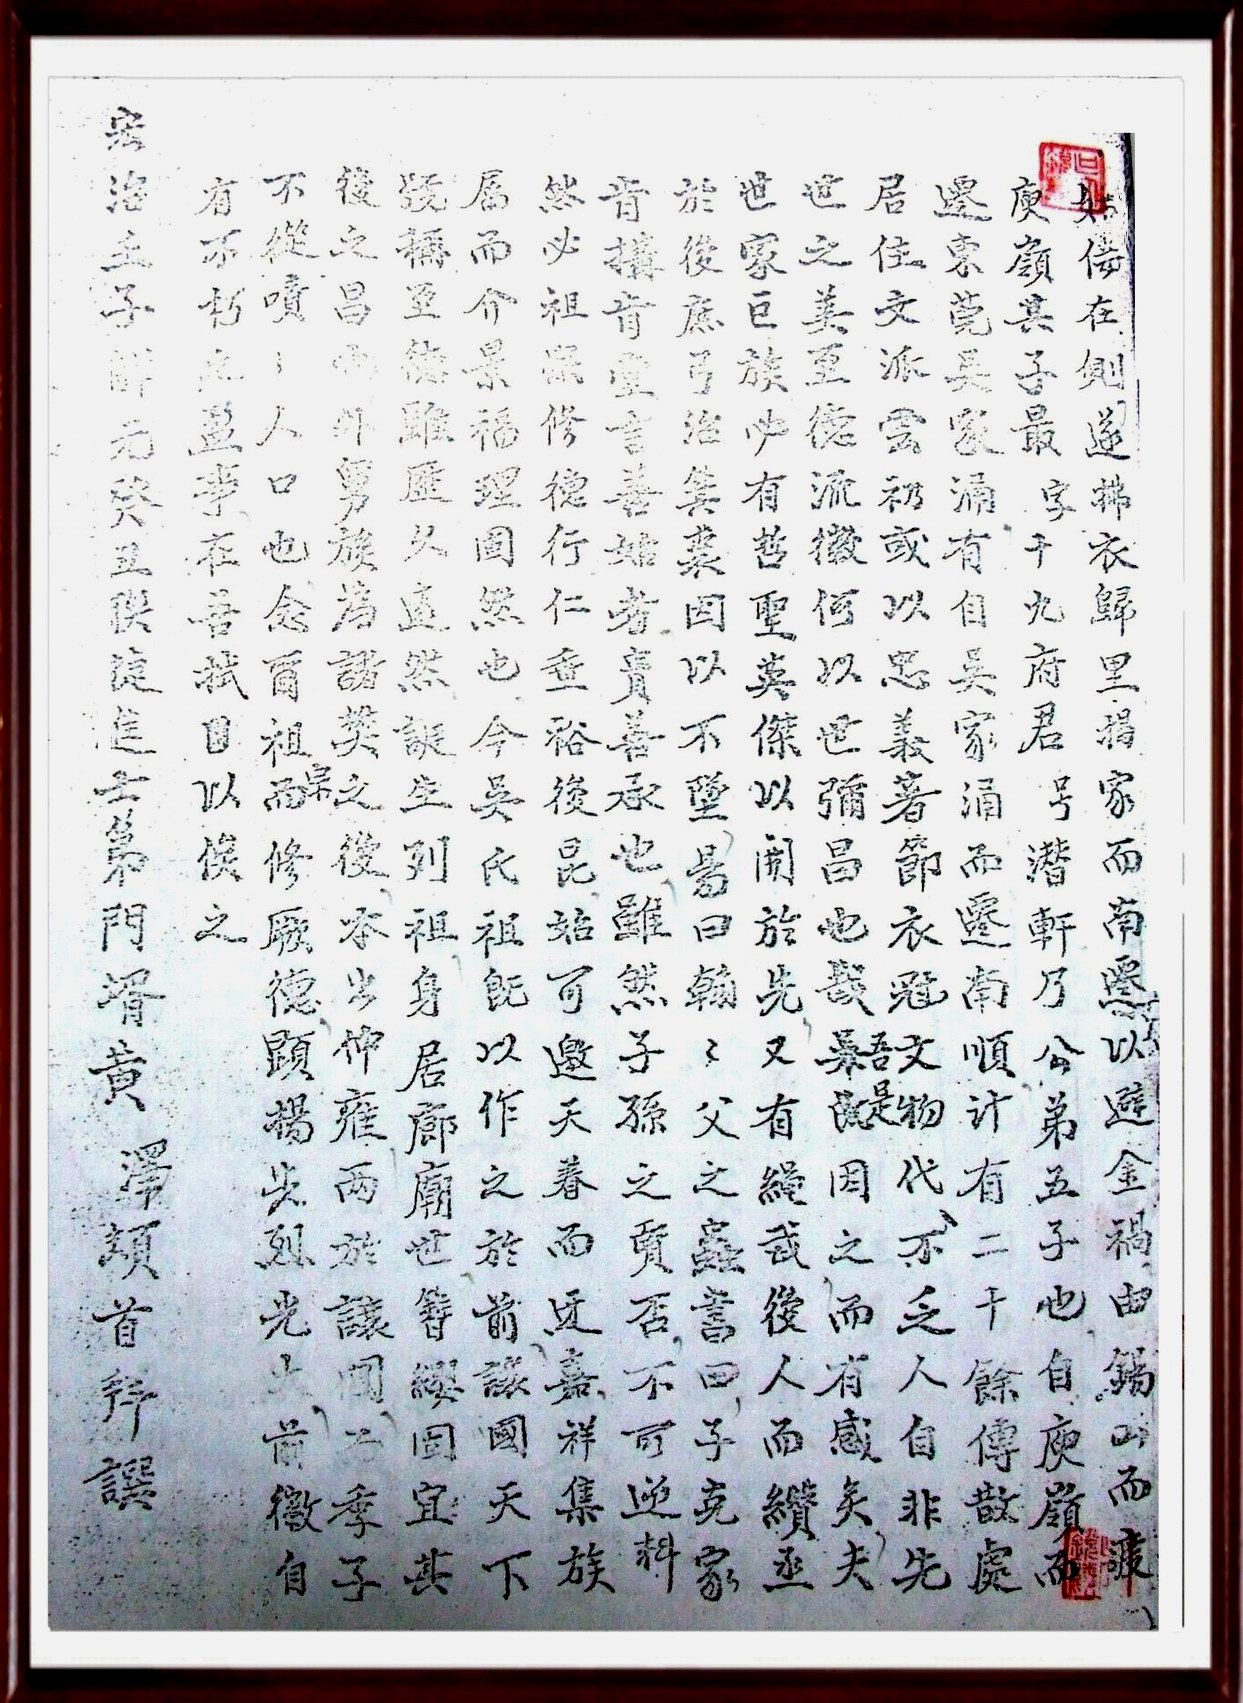 始倦在側遂拂衣歸里揭家而南遷以避金禍由錫山而踱
庾嶺其子最字千九府君号潛軒乃公弟五子也自庾嶺而
遷東莞吴家涌有自吴家涌而遷南順计有二十餘傳散處
居住文派雲礽或以忠義著節衣冠文物代不乏人自非先
世之美至德流徽何以世彌昌也哉吾是因之而有感矣夫
世家巨族必有哲聖英傑以開於先又有繩武後人而纘丞
於後庶弓治箕裘因以不墜易曰翰〻父之蠱書曰子克家
肯搆肯堂言善始者貴善承也雖然子孫之賢否不可逆料
然必祖深修德行仁垂裕後昆始可邀天眷而迓嘉祥集族
属而介景福理固然也今吴氏祖既以作之於前讓國天下
號稱至德雖歷久遠然誕生列祖身居廊廟世簪纓固宜其
後之昌也外舅族為諸樊之後本出仲雍兩於讓國而季子
不從嘖〻人口也念爾祖宗而修厥德顕揚先烈光大前徽自
有不朽之盛事在吾拭目以俟之
宏治壬子解元癸丑聯捷進士第門壻黄澤頓首拜譔